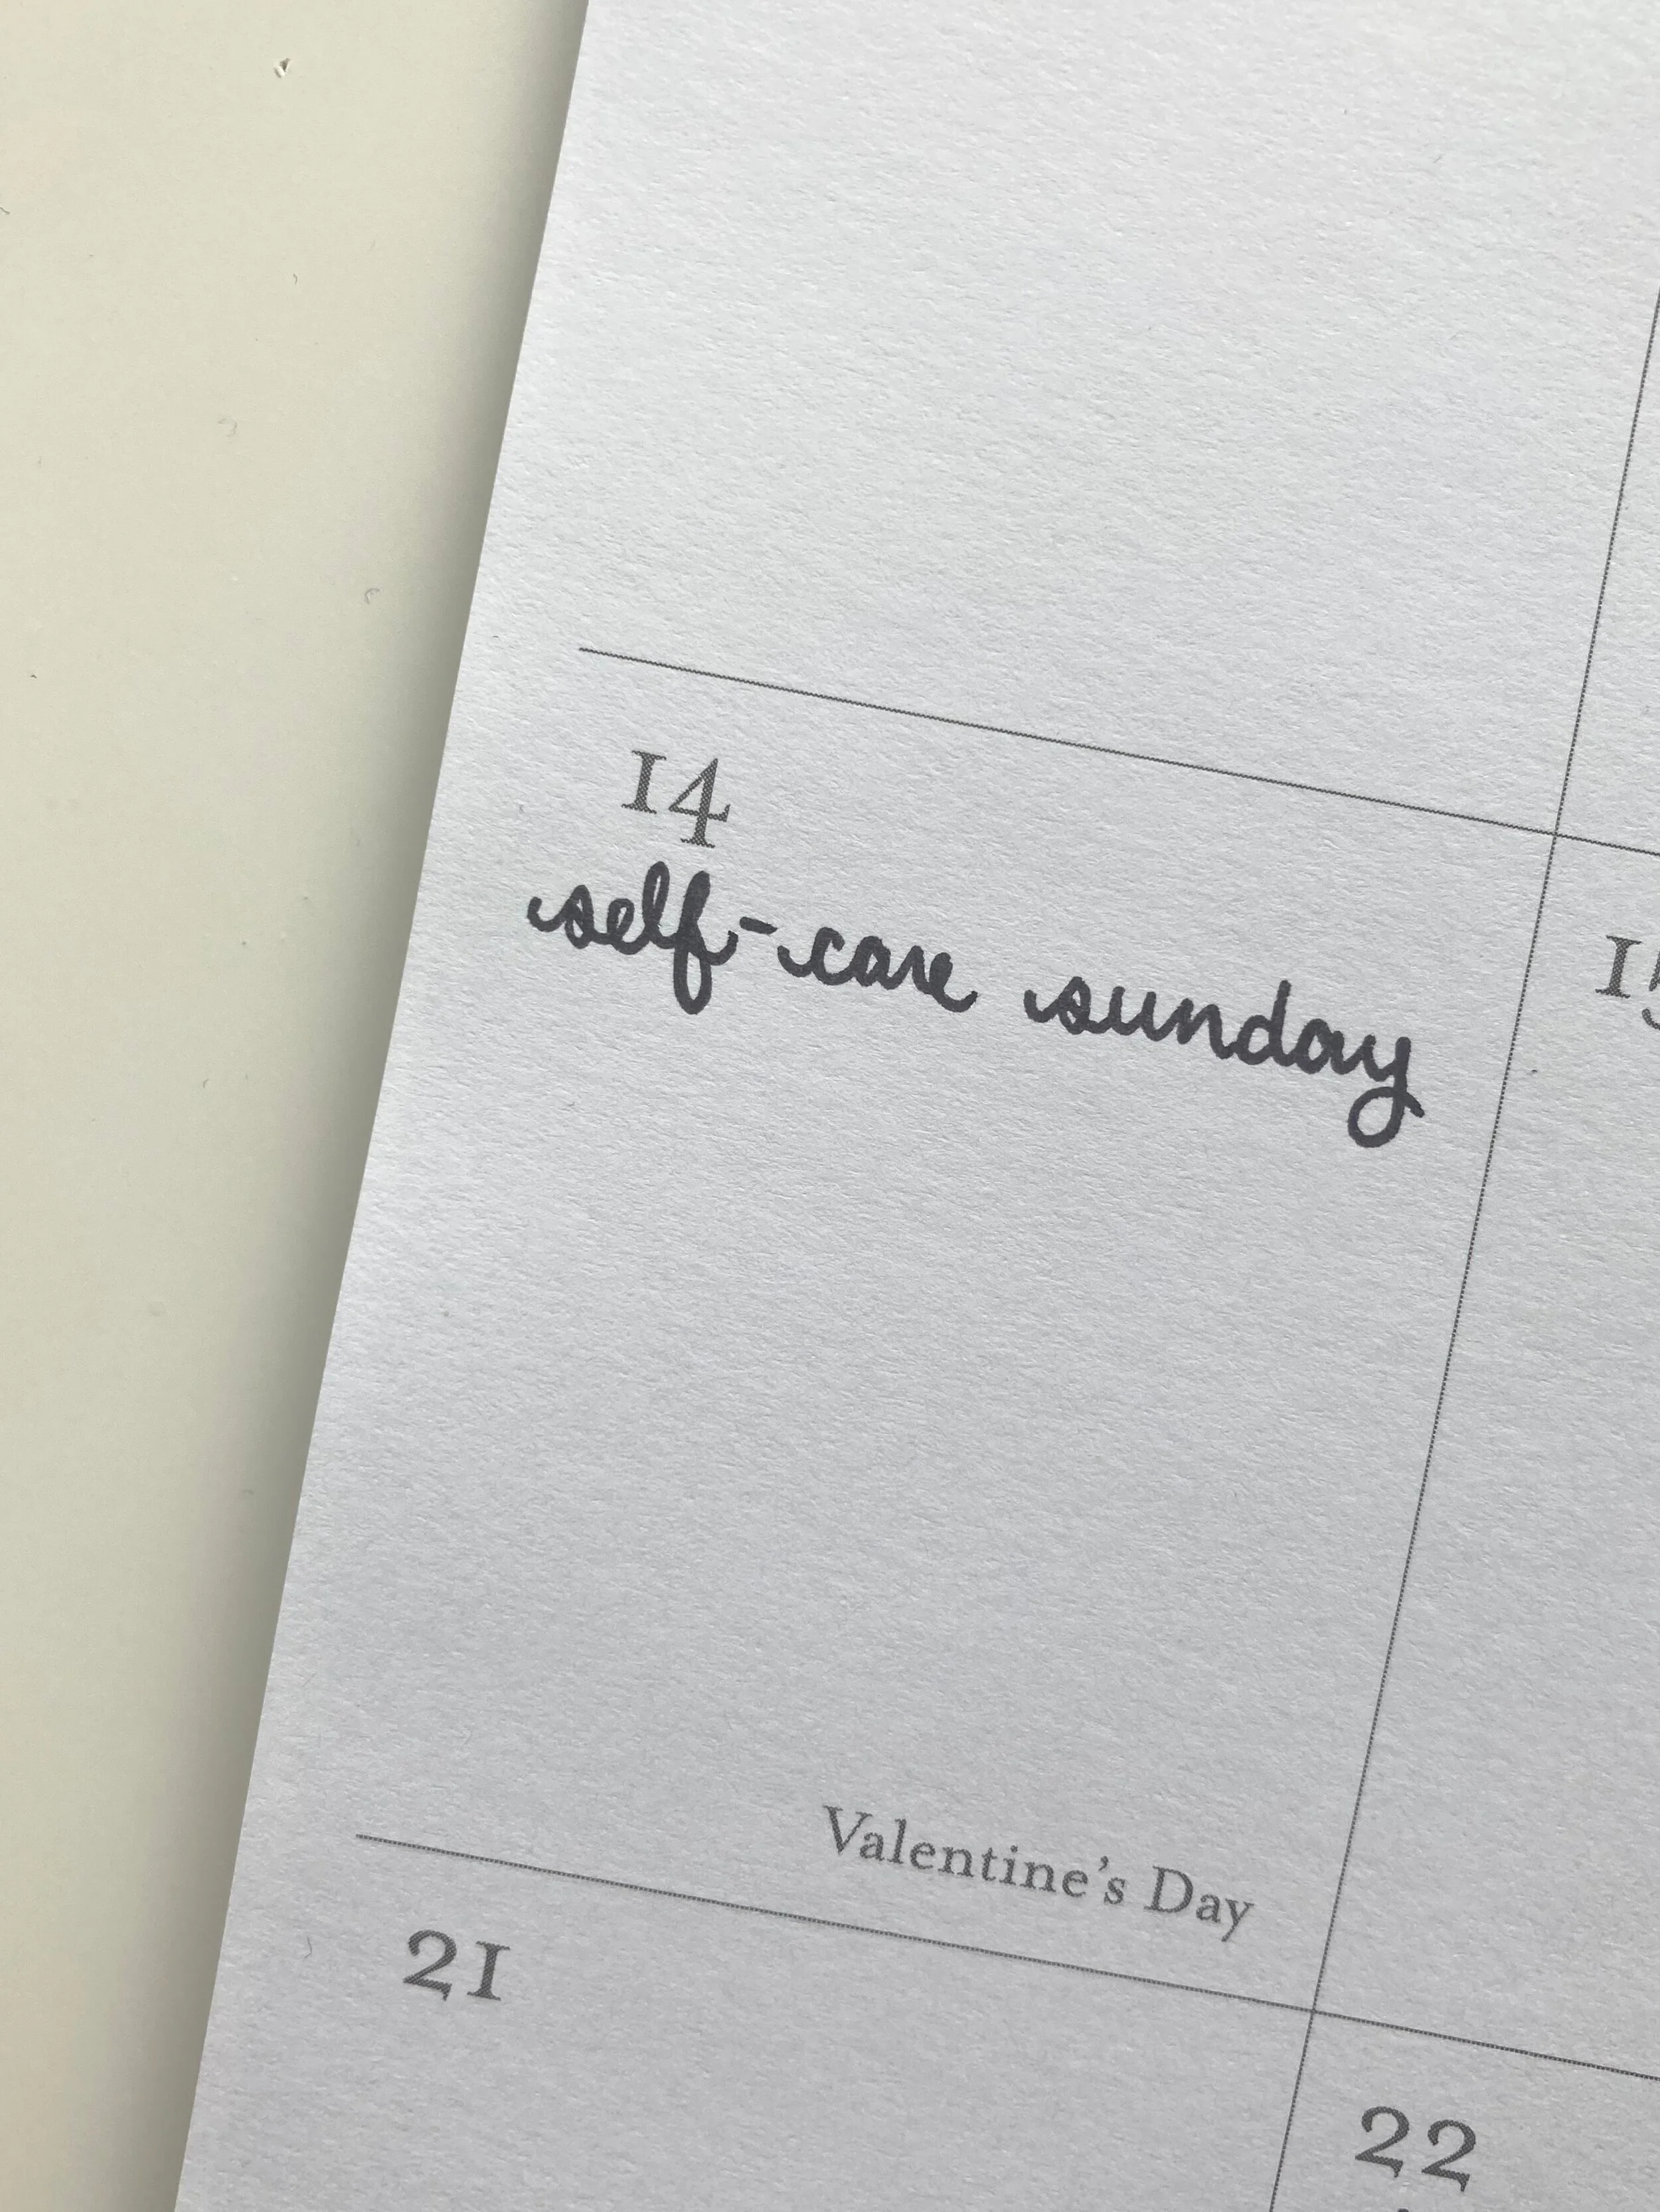 14
self-care sunday
15
Valentine's Day
21
22